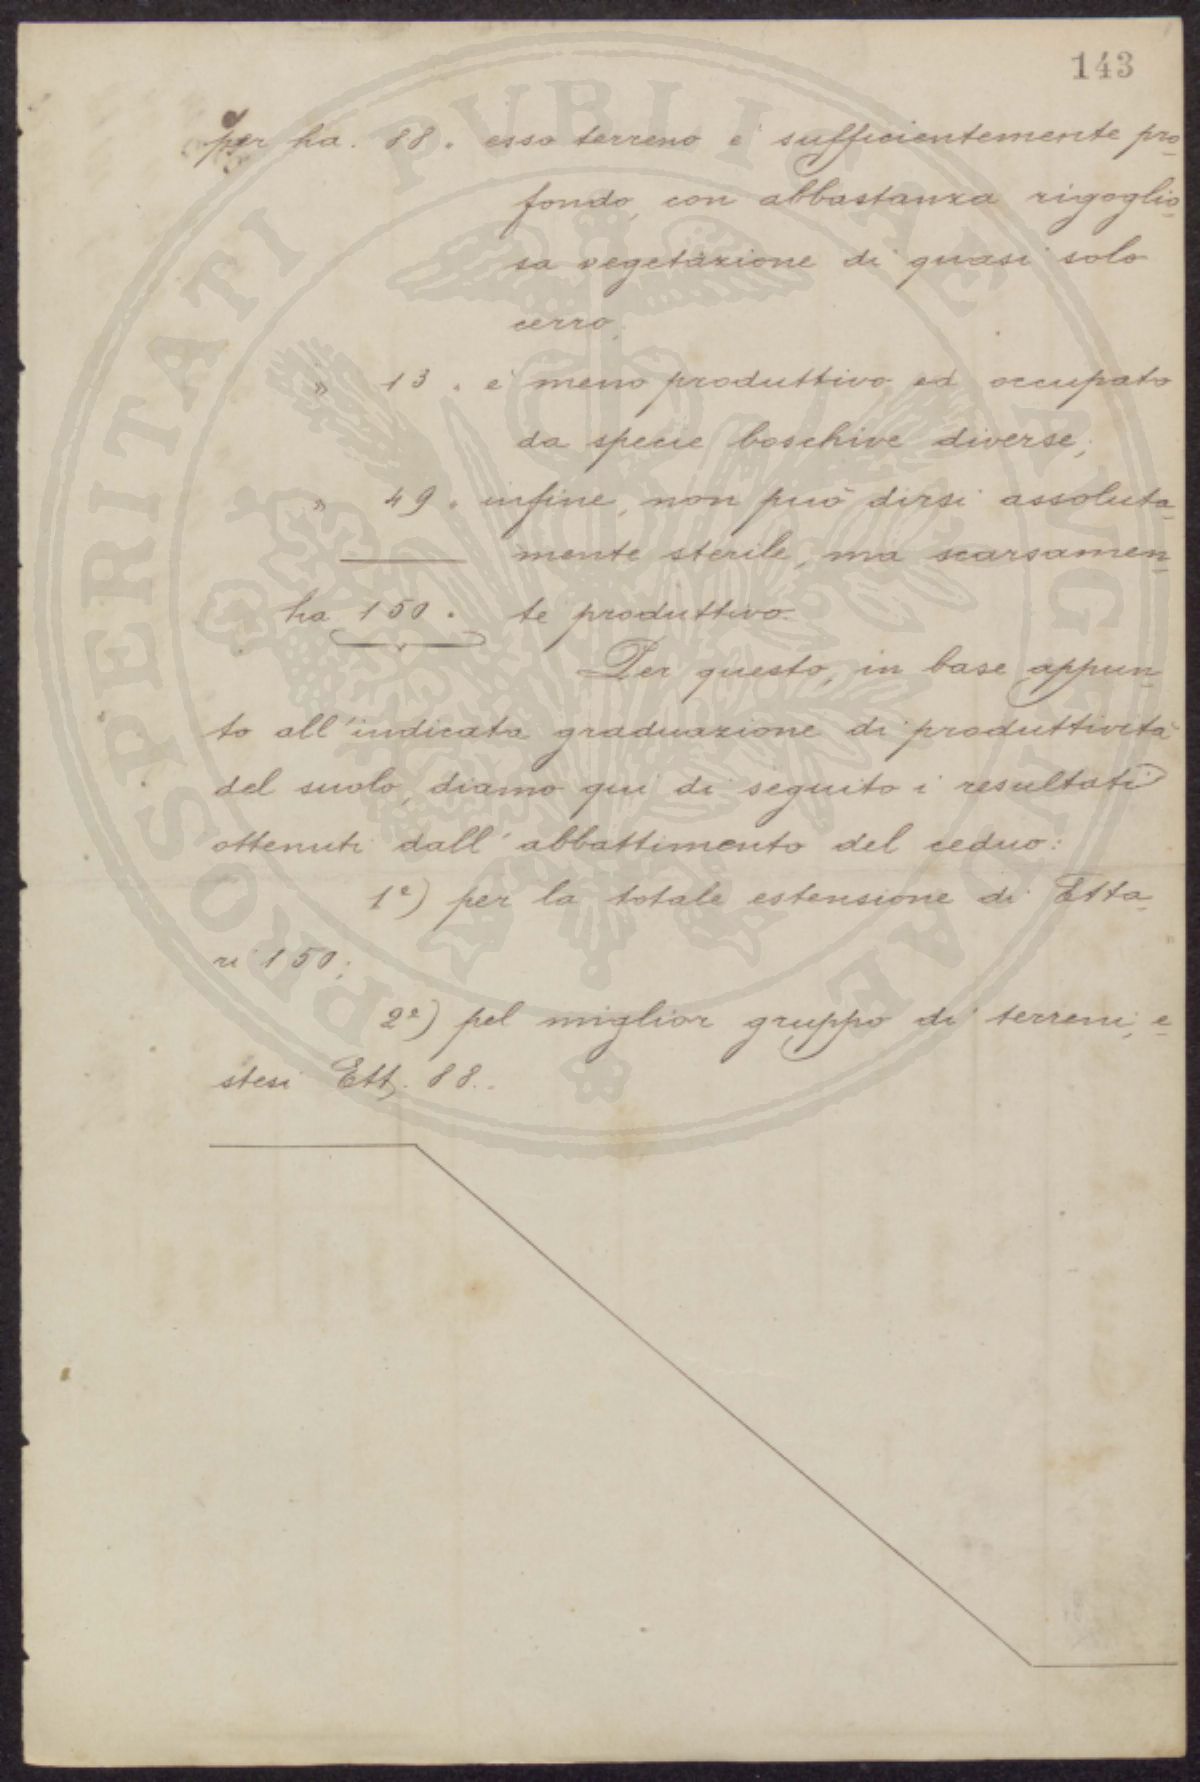 143
per ha. 88. esso terreno è sufficientemente pro-
fondo, con abbastanza rigoglio-
sa vegetazione di quasi solo
cerro,
» 13. è meno produttivo ed occupato
da specie boschive diverse;
» 49. infine, non può dirsi assoluta-
mente sterile, ma scarsamen-
ha 150. te produttivo.
Per questo, in base appun-
to all'indicata graduazione di produttività
del suolo, diamo qui di seguito i resultati
ottenuti dall'abbattimento del ceduo:
1º) per la totale estensione di Etta-
ri 150;
2º) pel miglior gruppo di terreni, e-
stesi Ett. 88.
PROSPERITATI PVBLICAE AVGENDAE